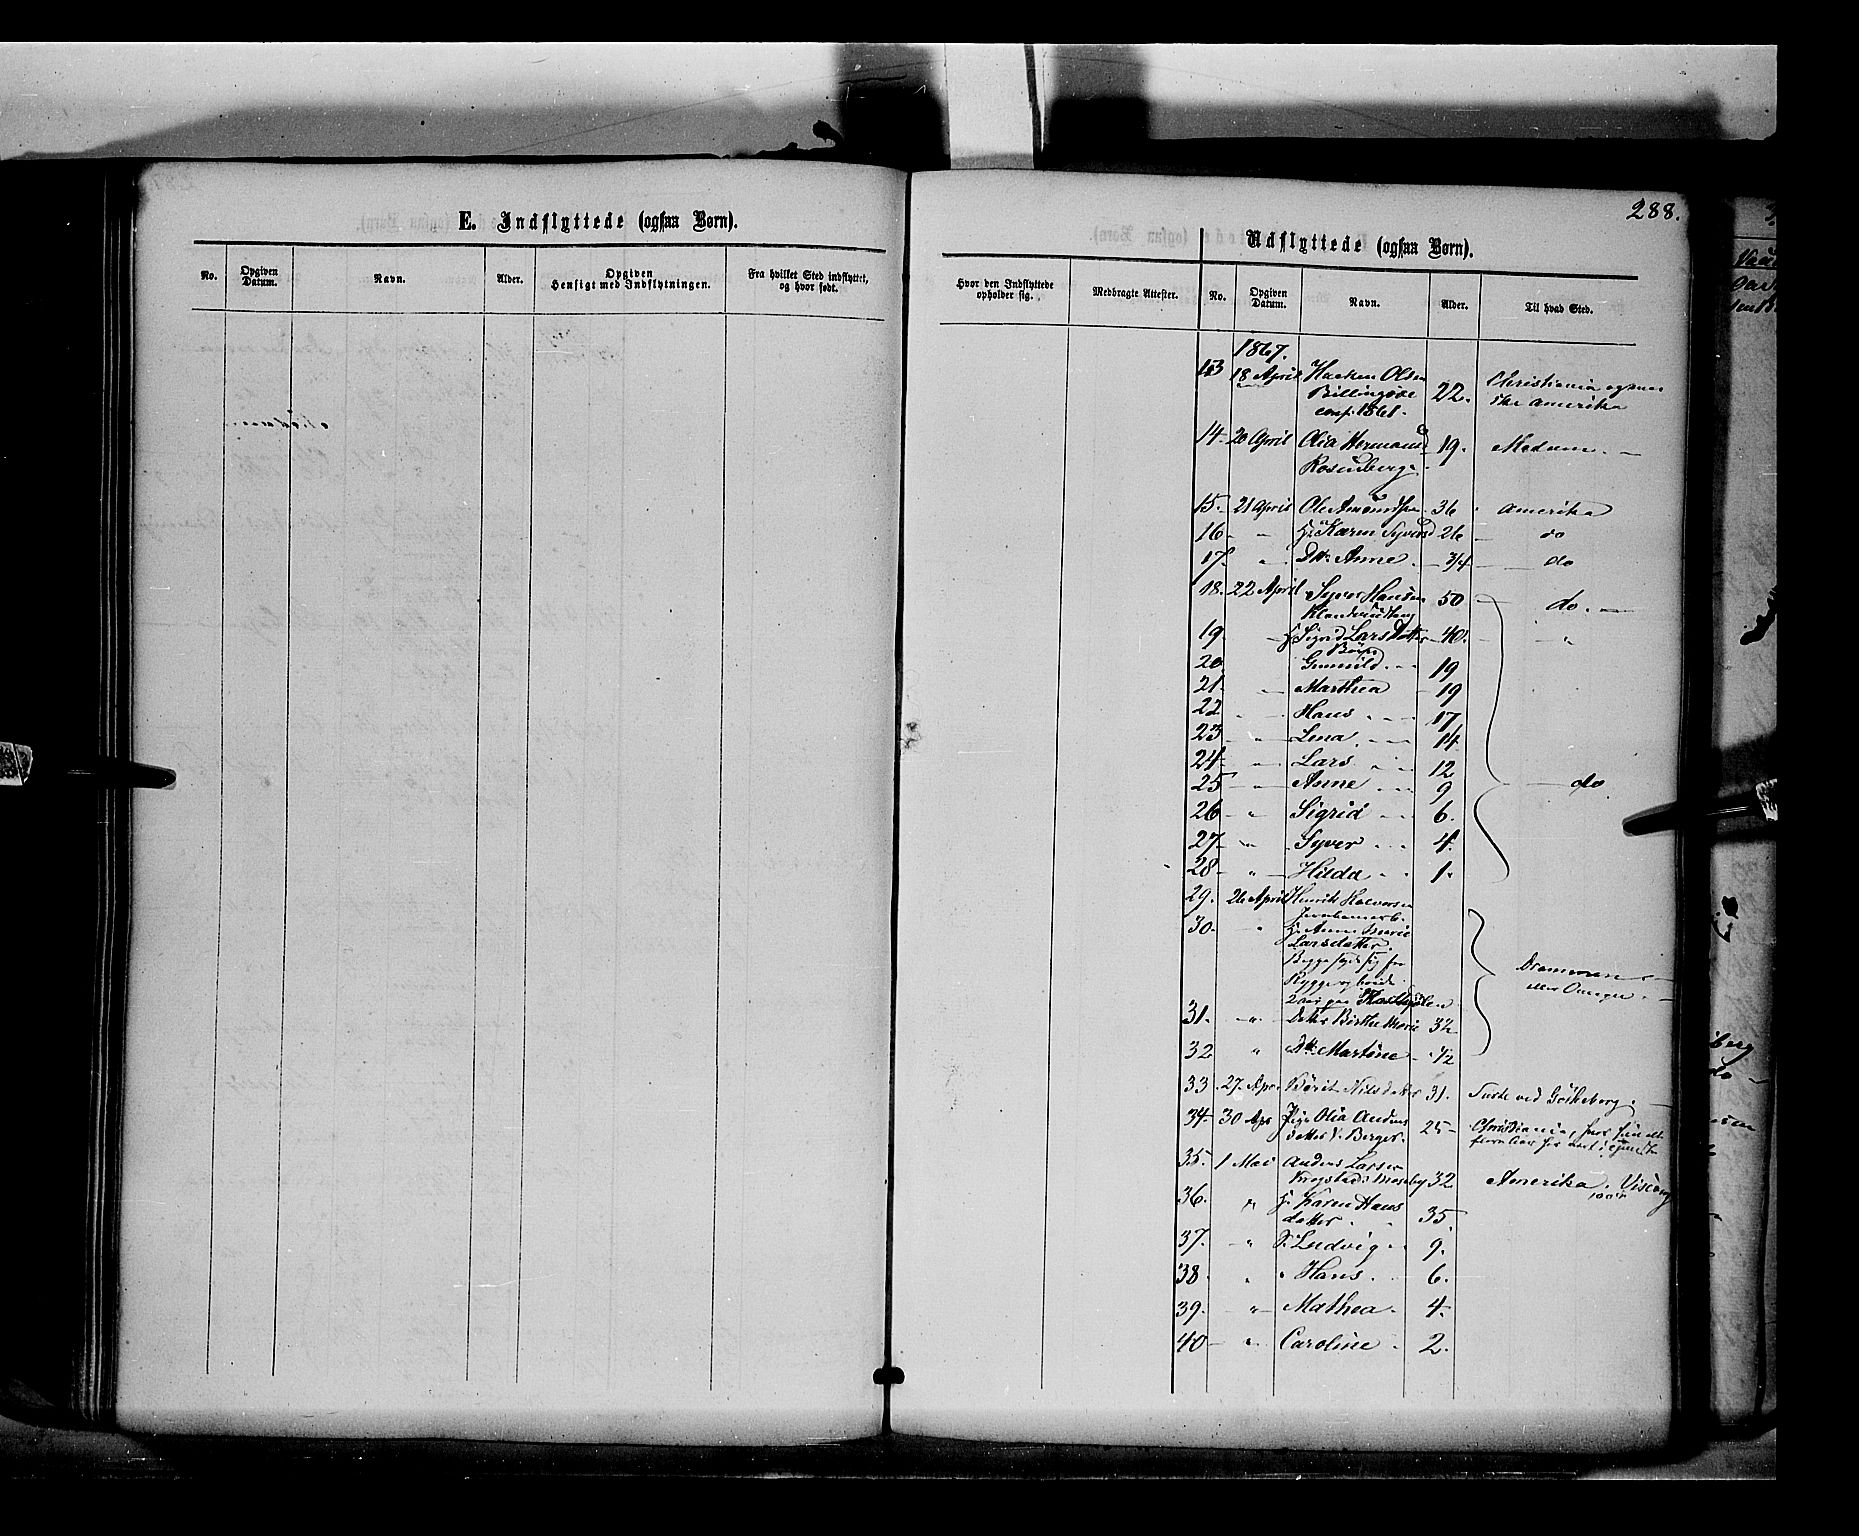 E. Indflyttede (ogsaa Børn).
No. Opgiven Datum. Navn. Alder. Opgiven Hensigt med Indflytningen. Fra hvilket Sted indflyttet, og hvor født.
288.
Udflyttede (ogsaa Børn).
Hvor den Indflyttede opholder sig. Medbragte Attester. No. Opgiven Datum. Navn. Alder. Til hvad Sted.
1867.
13 18 April Haaken Olsen 22. Christiania
conf. 1861. Amerika
14 20 April Olia Hermansd 19. Modum.
Rosenberg
15. 21 April Ole Amundsen 36 Amerika
16 " H: Karen Syversd 26 do
17. " Dtr Anne 3/4 do
18. 22 April Syver Hansen 50 do.
19 H Sigrid Larsdatter 40. "
Børn
20. Gunnild 19
21. " Marthea 19
22 " Hans 17
23 " Lena 14
24 " Lars 12
25 " Anne 9 do
26 " Sigrid 6.
27 " Syver 4.
28 " Hilda 1.
29. 26 April Henrik Halvorsen
30. " H. Anne Marie
Larsdatter.
Begge
Drammen
2 aar paa
31. " Datter Birthe Marie 32
32 " Dtr Martine 1/2
33 27. Apr Børit Nilsdatter 31. ved Gøtheborg.
34. 30 Apr Pige Olia Anders 25 Christiania,
datter Berger.
35. 1 Mai Anders Larsen
32 Amerika.
36. " H. Karen Hans
datter 35.
37. " S. Ludvig 9.
38 " Hans. 6.
39. " Mathea. 4.
40 " Caroline 2.